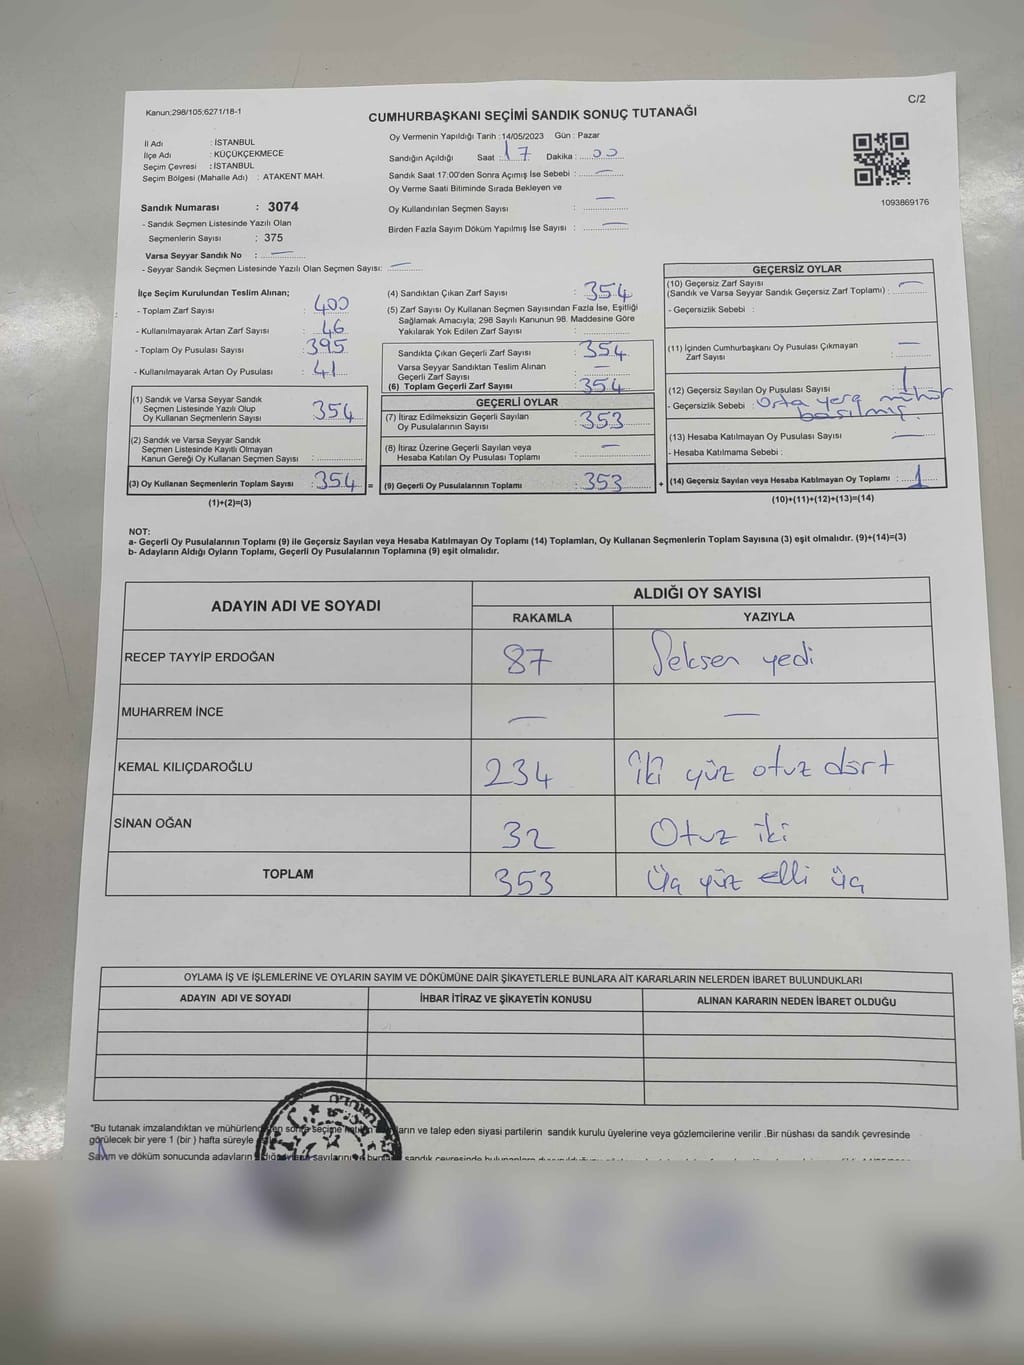 Kanun;298/105;6271/18-1
C/2
CUMHURBAŞKANI SEÇİMİ SANDIK SONUÇ TUTANAĞI
İl Adı : İSTANBUL
İlçe Adı : KÜÇÜKÇEKMECE
Seçim Çevresi : İSTANBUL
Seçim Bölgesi (Mahalle Adı) : ATAKENT MAH.
Sandık Numarası : 3074
- Sandık Seçmen Listesinde Yazılı Olan
Seçmenlerin Sayısı : 375
Varsa Seyyar Sandık No : —
- Seyyar Sandık Seçmen Listesinde Yazılı Olan Seçmen Sayısı: —
Oy Vermenin Yapıldığı Tarih :14/05/2023 Gün : Pazar
Sandığın Açıldığı Saat : 17 Dakika : 00
Sandık Saat 17:00'den Sonra Açımış İse Sebebi : —
Oy Verme Saati Bitiminde Sırada Bekleyen ve
Oy Kullandırılan Seçmen Sayısı : —
Birden Fazla Sayım Döküm Yapılmış İse Sayısı : —
1093869176
İlçe Seçim Kurulundan Teslim Alınan;
- Toplam Zarf Sayısı : 400
- Kullanılmayarak Artan Zarf Sayısı : 46
- Toplam Oy Pusulası Sayısı : 395
- Kullanılmayarak Artan Oy Pusulası : 41
(1) Sandık ve Varsa Seyyar Sandık
Seçmen Listesinde Yazılı Olup
Oy Kullanan Seçmenlerin Sayısı : 354
(2) Sandık ve Varsa Seyyar Sandık
Seçmen Listesinde Kayıtlı Olmayan
Kanun Gereği Oy Kullanan Seçmen Sayısı :
(3) Oy Kullanan Seçmenlerin Toplam Sayısı : 354 =
(1)+(2)=(3)
(4) Sandıktan Çıkan Zarf Sayısı : 354
(5) Zarf Sayısı Oy Kullanan Seçmen Sayısından Fazla İse, Eşitliği
Sağlamak Amacıyla; 298 Sayılı Kanunun 98. Maddesine Göre
Yakılarak Yok Edilen Zarf Sayısı :
Sandıkta Çıkan Geçerli Zarf Sayısı : 354
Varsa Seyyar Sandıktan Teslim Alınan
Geçerli Zarf Sayısı : —
(6) Toplam Geçerli Zarf Sayısı : 354
GEÇERLİ OYLAR
(7) İtiraz Edilmeksizin Geçerli Sayılan
Oy Pusulalarının Sayısı : 353
(8) İtiraz Üzerine Geçerli Sayılan veya
Hesaba Katılan Oy Pusulası Toplamı : —
(9) Geçerli Oy Pusulalarının Toplamı : 353 +
GEÇERSİZ OYLAR
(10) Geçersiz Zarf Sayısı
(Sandık ve Varsa Seyyar Sandık Geçersiz Zarf Toplamı) : —
- Geçersizlik Sebebi :
(11) İçinden Cumhurbaşkanı Oy Pusulası Çıkmayan
Zarf Sayısı : —
(12) Geçersiz Sayılan Oy Pusulası Sayısı : 1
- Geçersizlik Sebebi : Orta yere mühür
basılmış.
(13) Hesaba Katılmayan Oy Pusulası Sayısı : —
- Hesaba Katılmama Sebebi :
(14) Geçersiz Sayılan veya Hesaba Katılmayan Oy Toplamı : 1
(10)+(11)+(12)+(13)=(14)
NOT:
a- Geçerli Oy Pusulalarının Toplamı (9) ile Geçersiz Sayılan veya Hesaba Katılmayan Oy Toplamı (14) Toplamları, Oy Kullanan Seçmenlerin Toplam Sayısına (3) eşit olmalıdır. (9)+(14)=(3)
b- Adayların Aldığı Oyların Toplamı, Geçerli Oy Pusulalarının Toplamına (9) eşit olmalıdır.
ADAYIN ADI VE SOYADI
ALDIĞI OY SAYISI
RAKAMLA YAZIYLA
RECEP TAYYİP ERDOĞAN 87 Seksen yedi
MUHARREM İNCE — —
KEMAL KILIÇDAROĞLU 234 İki yüz otuz dört
SİNAN OĞAN 32 Otuz iki
TOPLAM 353 Üç yüz elli üç
OYLAMA İŞ VE İŞLEMLERİNE VE OYLARIN SAYIM VE DÖKÜMÜNE DAİR ŞİKAYETLERLE BUNLARA AİT KARARLARIN NELERDEN İBARET BULUNDUKLARI
ADAYIN ADI VE SOYADI İHBAR İTİRAZ VE ŞİKAYETİN KONUSU ALINAN KARARIN NEDEN İBARET OLDUĞU
*Bu tutanak imzalandıktan ve mühürlendikten sonra seçime katılan ve talep eden siyasi partilerin sandık kurulu üyelerine veya gözlemcilerine verilir .Bir nüshası da sandık çevresinde
görülecek bir yere 1 (bir ) hafta süreyle
Sayım ve döküm sonucunda adayların